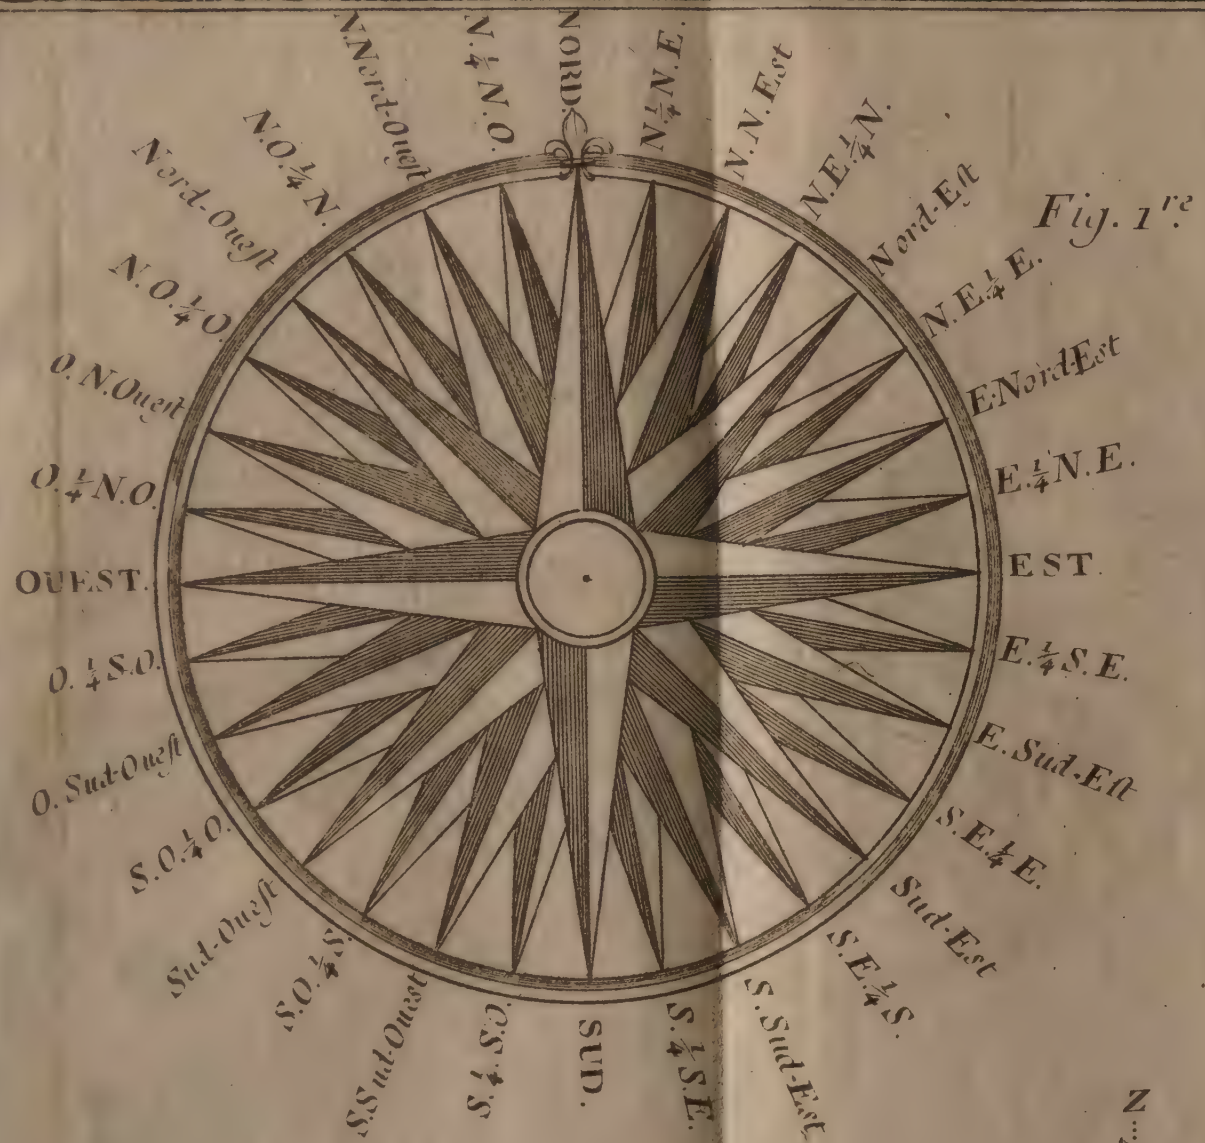 NORD.
N¼N.E.
N.N.Est
N.E¼N.
Nord-Eſt
N.E.¼E.
E.Nord-Est
E.¼N.E.
EST.
E.¼S.E.
E.Sud-Eſt
S.E.¼E.
Sud-Est
S.E.¼S.
S.Sud-Est
S.¼S.E.
SUD.
S.¼S.O
S.Sud-Ouest
S.O.¼S.
Sud-Oueſt
S.O.¼O.
O.Sud-Oueſt
O.¼S.O.
OUEST.
O.¼N.O.
O.N.Ouest
N.O.¼O.
Nord-Oueſt
N.O.¼N.
N.Nord-Oueſt
N.¼N.O.
Fig. 1re.
Z